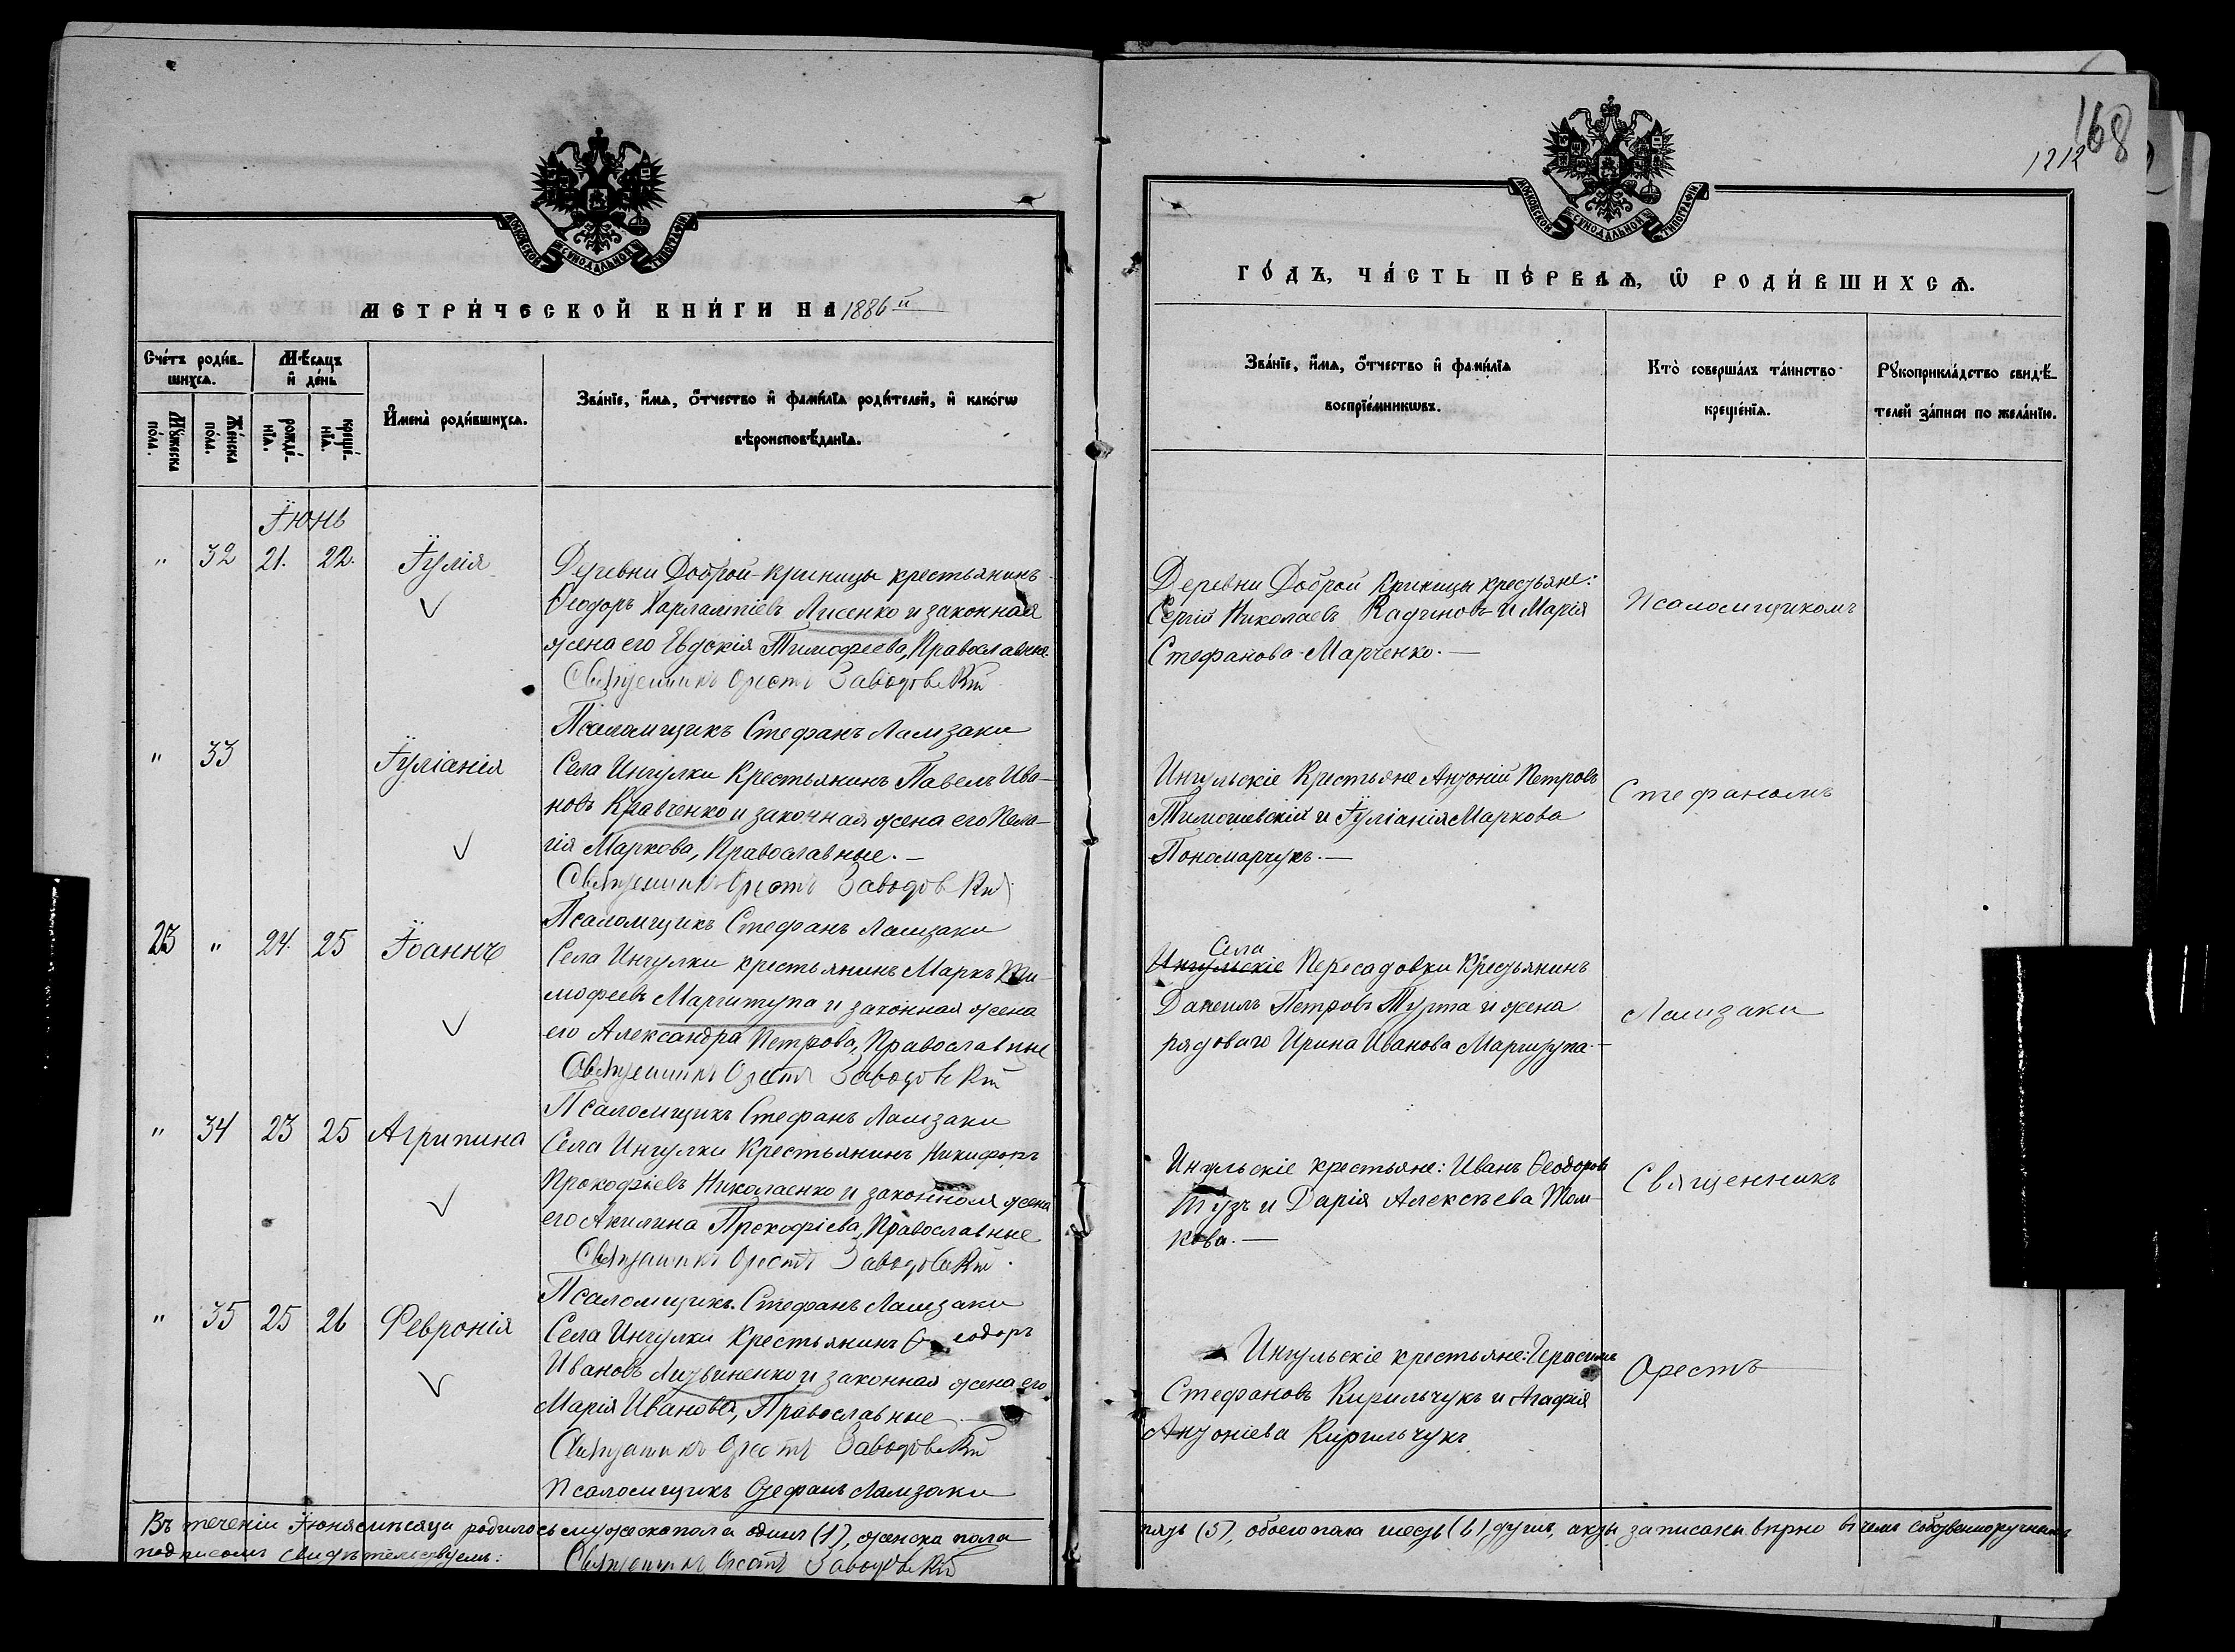 168
1212
МОСКОВСКОЙ СѴНОДАЛЬНОЙ ТИПОГРАФІИ
МОСКОВСКОЙ СѴНОДАЛЬНОЙ ТИПОГРАФІИ
МЕТРИ́ЧЕСКОЙ КНИ́ГИ НА 1886 й
ГО́ДЪ, ЧА́СТЬ ПЕ́РВАѦ, Ѿ РОДИ́ВШИХСѦ.
Сче́тъ роди́в-
шихсѧ.
Мѣ́сѧцъ
и де́нь
Мꙋ́жеска
по́ла.
Же́нска
по́ла.
рожде́-
нїѧ.
креще́-
нїѧ.
И҆мена̀ роди́вшихсѧ.
Зва́нїе, и҆́мѧ, ѻ҆́тчество и҆ фами́лїѧ роди́телей, и҆ како́гѡ
вѣроисповѣ́данїѧ.
Зва́нїе, и҆́мѧ, ѻ҆́тчество и҆ фами́лїѧ
воспрїе́мникѡвъ.
Кто̀ соверша́лъ та́инство
креще́нїѧ.
Рꙋкоприкла́дство свидѣ́-
телей за́писи по жела́нїю.
Іюнь
" 32 21. 22. Іулія
Деревни Доброй-Криницы крестьянинъ
Ѳеодоръ Харлампіевъ Лисенко и законная
жена его Евдокія Тимофеева, Православные
Священникъ Орестъ Заводовскій
Псаломщикъ Стефанъ Ламзаки
Деревни Доброй Криницы крестьяне:
Сергій Николаевъ Радиновъ и Марія
Стефанова Марченко. —
Псаломщикомъ
" 33 Іуліанія
Села Ингулки Крестьянинъ Павелъ Ива-
новъ Кравченко и законная жена его Пела-
гія Маркова, Православные. —
Священникъ Орестъ Заводовскій
Псаломщикъ Стефанъ Ламзаки
Ингульскіе Крестьяне Антоній Петровъ
Тимошевскій и Іуліанія Маркова
Пономарчукъ. —
Стефаномъ
23 " 24. 25 Іоаннъ
Села Ингулки крестьянинъ Маркъ Ти-
мофеевъ Маргитупа и законная жена
его Александра Петрова, Православные
Священникъ Орестъ Заводовскій
Псаломщикъ Стефанъ Ламзаки
Села
Ингульскіе Пересадовки Крестьянинъ
Даніилъ Петровъ Турта и жена
рядоваго Ирина Иванова Маргитупа —
Ламзаки
" 34 23 25 Агрипина
Села Ингулки Крестьянинъ Никифоръ
Прокофіевъ Николаенко и законная жена
его Акилина Прокофіева, Православные
Священникъ Орестъ Заводовскій.
Псаломщикъ Стефанъ Ламзаки
Ингульскіе крестьяне: Иванъ Ѳеодоровъ
Тузъ и Дарія Алексѣева Том-
кова. —
Священникъ
" 35 25 26 Февронія
Села Ингулки Крестьянинъ Ѳеодоръ
Ивановъ Литвиненко и законная жена его
Марія Иванова, Православные —
Священникъ Орестъ Заводовскій
Псаломщикъ Стефанъ Ламзаки
Ингульскіе крестьяне: Герасимъ
Стефановъ Кирильчукъ и Агафія
Антоніева Кирильчукъ
Орестъ
Въ теченіи Іюня мѣсяца родилось мужеска пола одинъ (1), женска пола
пять (5), обоего пола шесть (6) душъ, акты записаны вѣрно въ чемъ собственноручнымъ
подписомъ свидѣтельствуемъ:
Священникъ Орестъ Заводовскій